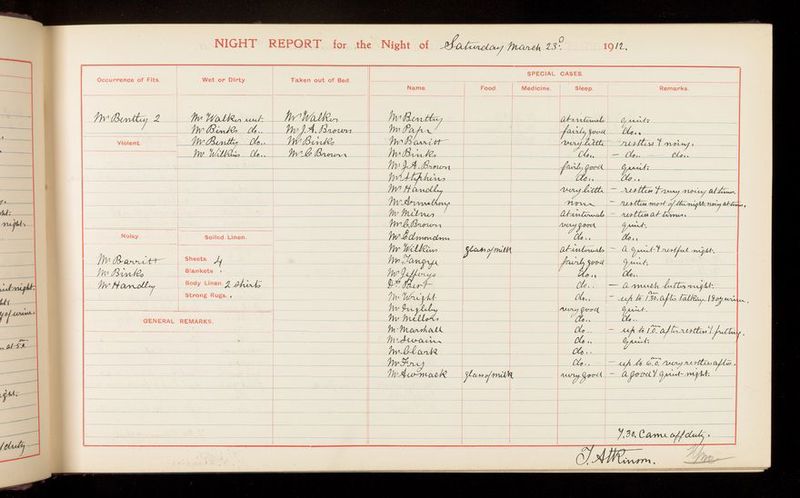 NIGHT REPORT for the Night of Saturday March 23rd 1912.
SPECIAL CASES.
Occurrence of Fits. Wet or Dirty Taken out of Bed Name. Food. Medicine. Sleep. Remarks.
Mr Bentley 2 Mr Walker wet. Mr Walker Mr Bentley at intervals quiet.
Mr Binks do.. Mr J. A. Brown fairly good do..
Violent. Mr Bentley do.. Mr Binks Mr Barritt very little restless & noisy.
Mr Wilkins do.. Mr G Brown Mr Binks do.. do.. do..
Mr J. A. Brown fairly good quiet.
Mr Stephens do.. do..
Mr Handley very little restless & very noisy at times.
Mr Armstrong none restless most of the night noisy at times.
Mr Milnes at intervals restless at times.
Mr G. Brown very good quiet.
Noisy. Soiled Linen. Mr Edmondson do.. do..
Mr Wilkins glass of milk at intervals a quiet & restful night.
Mr Barritt Sheets 4 fairly good quiet.
Mr Binks Blankets Mr Jefferys do.. do..
Mr Handley Body Linen. 2 shirts do.. a much better night.
Strong Rugs. Mr Wright do..
Mr Ingleby very good quiet.
GENERAL REMARKS. Mr Mellor do.. do..
Mr Marshall do..
Mr Swain do.. quiet.
Mr Clark do..
do..
glass of milk very good a good & quiet night.
7.30. Came off duty.
J. Atkinson.